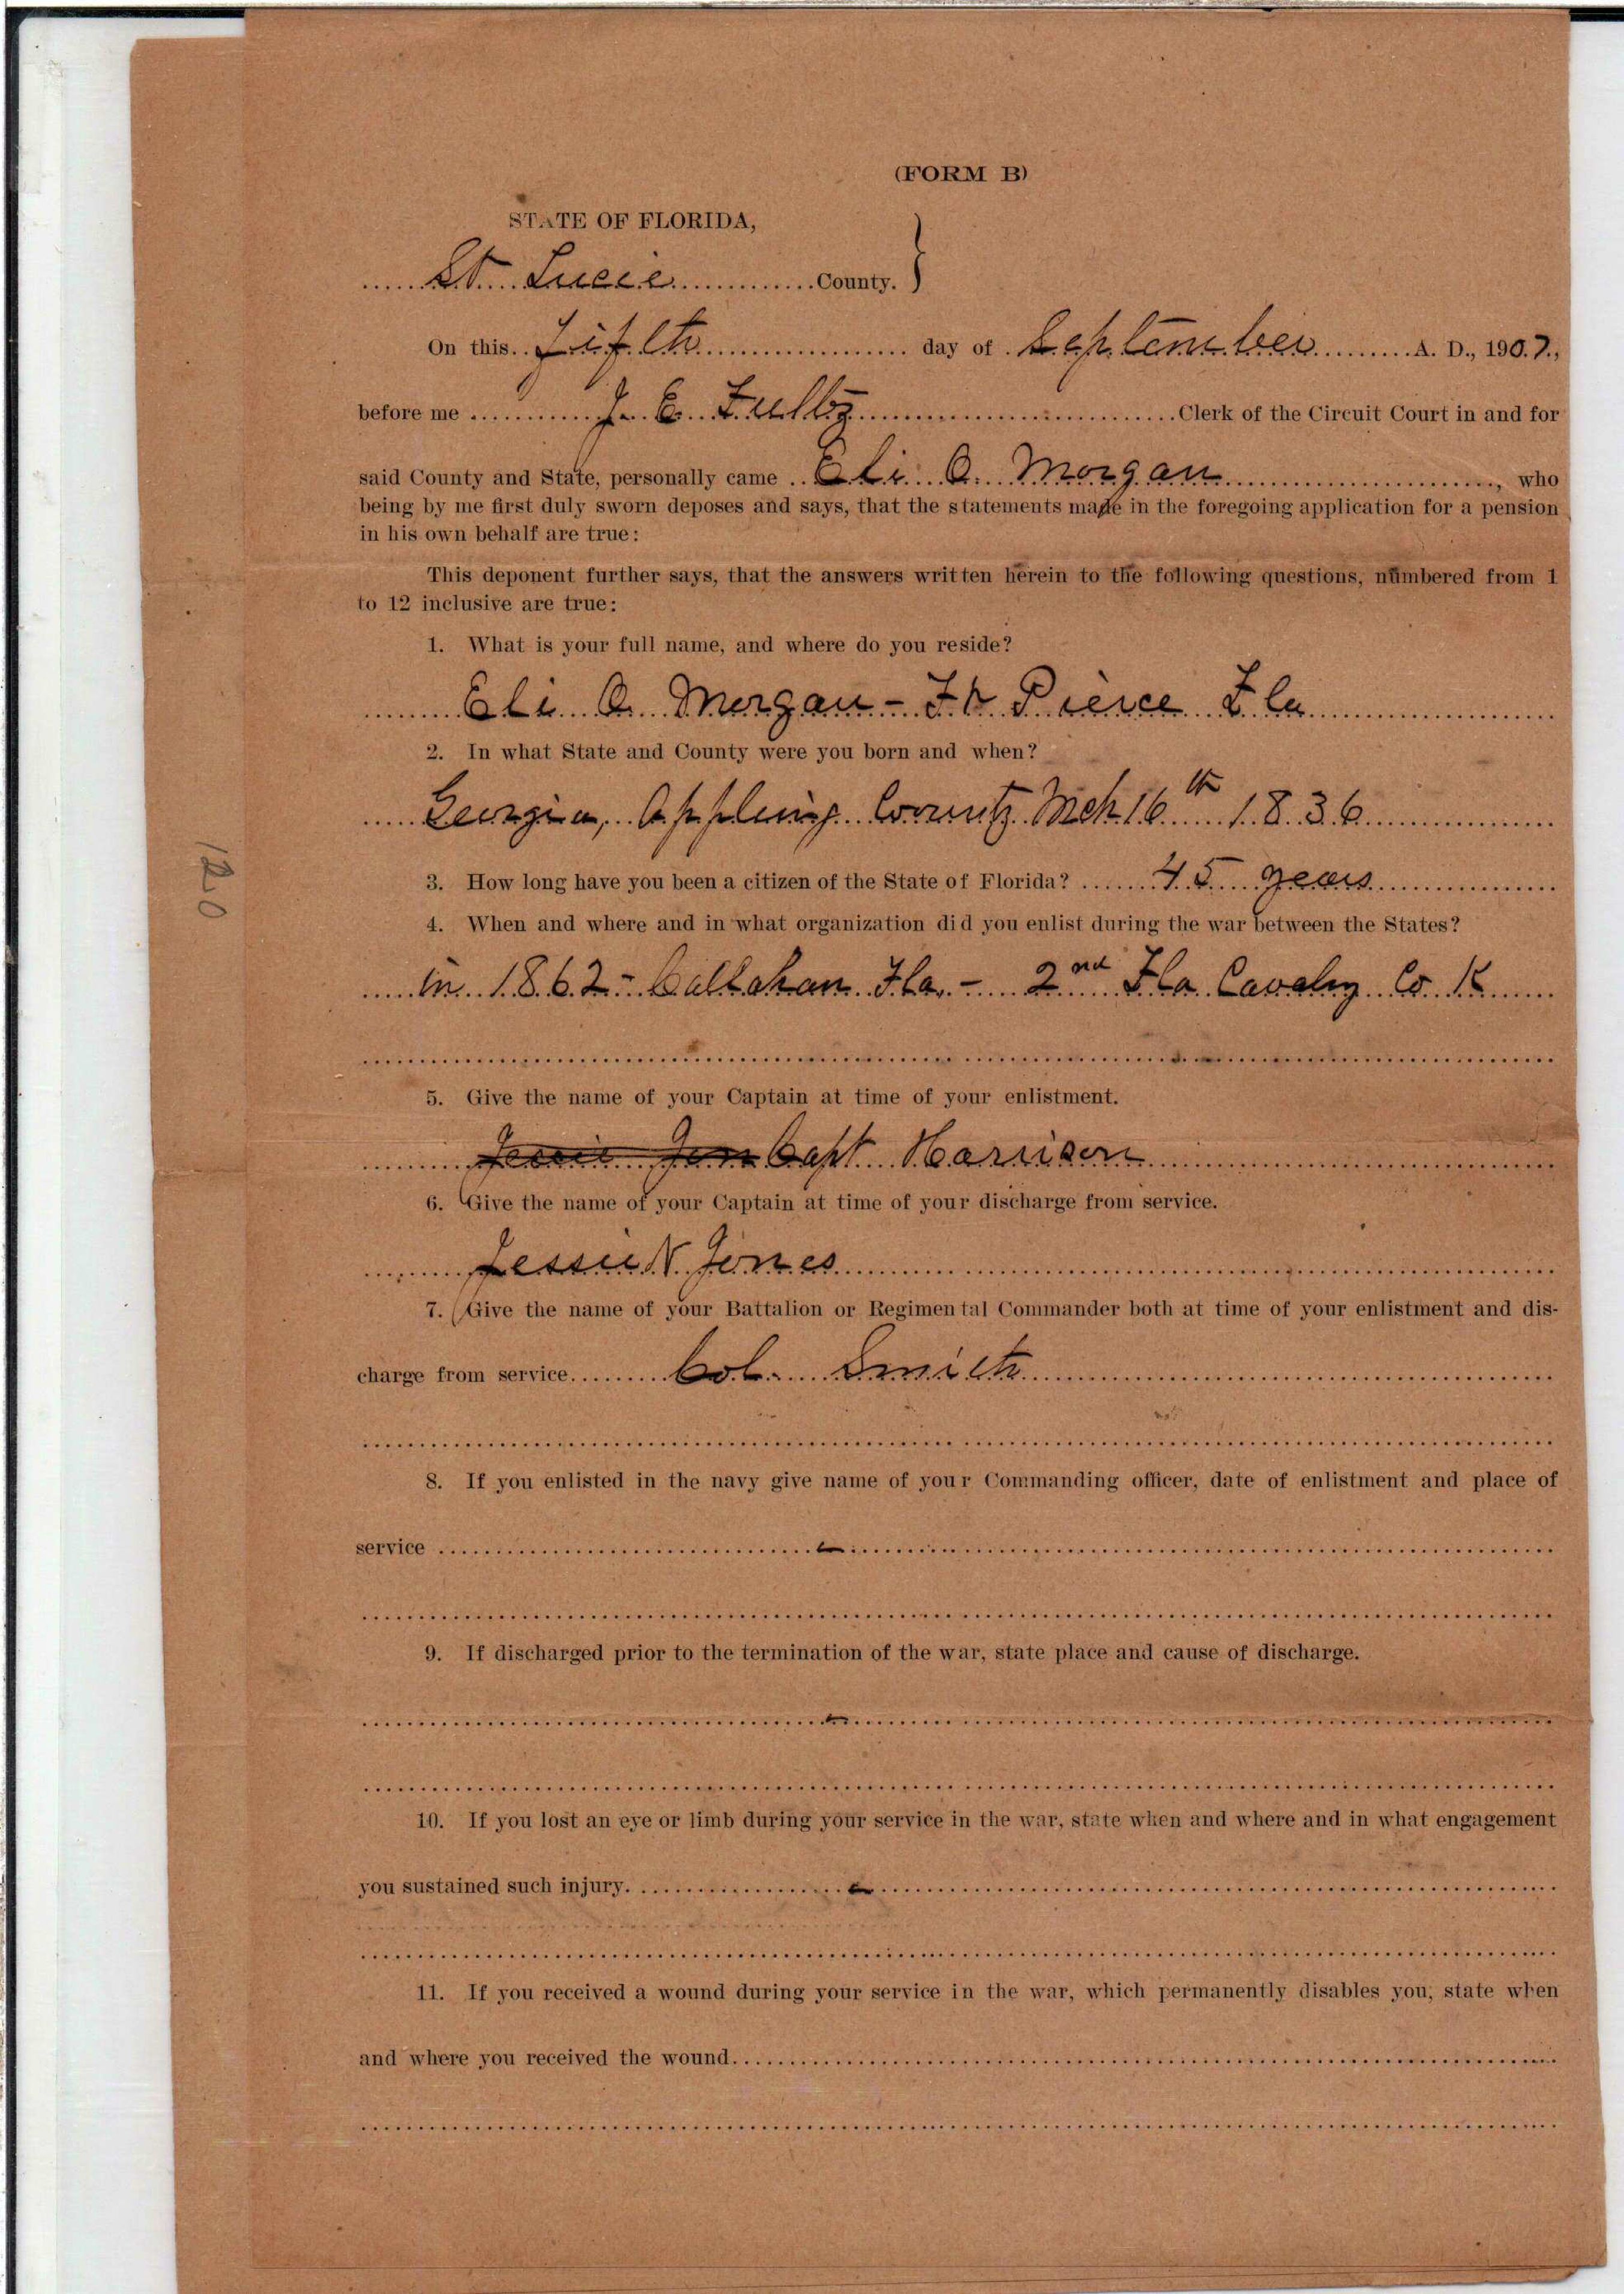 (FORM B)
STATE OF FLORIDA,
St. Lucie County. }
On this Fifth day of September A. D., 1907,
before me J. E. Fultz Clerk of the Circuit Court in and for
said County and State, personally came Eli O. Morgan, who
being by me first duly sworn deposes and says, that the statements made in the foregoing application for a pension
in his own behalf are true:
This deponent further says, that the answers written herein to the following questions, numbered from 1
to 12 inclusive are true:
1. What is your full name, and where do you reside?
Eli O. Morgan - Ft Pierce Fla
2. In what State and County were you born and when?
Georgia, Appling County Mch 16th 1836
3. How long have you been a citizen of the State of Florida? 45 years
4. When and where and in what organization did you enlist during the war between the States?
in 1862 - Callahan Fla. - 2nd Fla Cavalry Co. K
5. Give the name of your Captain at time of your enlistment.
Jessie Jon Capt Harrison
6. Give the name of your Captain at time of your discharge from service.
Jessie N Jones
7. Give the name of your Battalion or Regimental Commander both at time of your enlistment and dis-
charge from service Col. Smith
8. If you enlisted in the navy give name of your Commanding officer, date of enlistment and place of
service -
9. If discharged prior to the termination of the war, state place and cause of discharge.
-
10. If you lost an eye or limb during your service in the war, state when and where and in what engagement
you sustained such injury. -
11. If you received a wound during your service in the war, which permanently disables you, state when
and where you received the wound
120